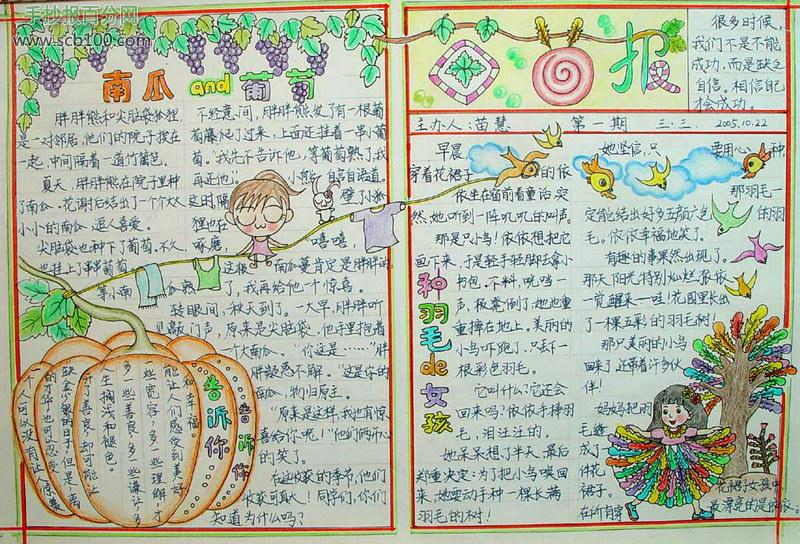 手抄报百分网
www.scb100.com
南瓜and葡萄
胖胖熊和尖脑袋狐狸
是一对邻居,他们的院子挨在
一起,中间隔着一道竹篱笆。
夏天,胖胖熊在院子里种
了南瓜。花谢后结出了一个个大大
小小的南瓜,逗人喜爱。
尖脑袋也种下了葡萄。不久,
也挂上了串串葡萄。
不经意间,胖胖熊发了有一根葡
萄藤爬了过来,上面还挂着一串小葡
萄。“我先不告诉他,等葡萄熟了,我
再还他!”小熊自言自语道。
这时隔壁小狐
狸也在
琢磨,嘻嘻,
这根南瓜蔓肯定是胖胖的
等小南瓜熟了,我再给他一个惊喜。
转眼间,秋天到了。一大早,胖胖听
见敲门声,原来是尖脑袋,他手里抱着
一个大南瓜。“你这是……”胖
胖疑惑不解。“这是你的
南瓜,物归原主。
“原来是这样,我也有惊
喜给你呢!”他们俩开心
的笑了。
在这收获的季节,他们
收获可真大!同学们,你们
知道为什么吗?
告诉你
告诉你
一个人可以没有让人惊羡
的才华,也可以忍受
缺金少银的日子,但是,离
开了善良,却可能让
人生搁浅和褪色。
多一些善良,多一些谦让,多
一些宽容,多一些理解,才
能让人们感受到美好
和幸福。
报
很多时候,
我们不是不能
成功,而是缺乏
自信。相信自己
才会成功。
主办人:苗慧 第一期 三.三. 2005.10.22
和羽毛de女孩
早晨,
穿着花裙子的依
依坐在窗前看童话,突
然,她听到一阵叽叽的叫声。
那是只小鸟!依依想把它
画下来,于是轻手轻脚去拿小
书包。不料,咣当一
声,板凳倒了,她也重
重摔在地上。美丽的
小鸟吓跑了,只丢下一
根彩色羽毛。
它叫什么?它还会
回来吗?依依手捧羽
毛,泪汪汪的。
她呆呆想了半天,最后
郑重决定:为了把小鸟唤回
来,她要动手种一棵长满
羽毛的树!
她坚信,只要用心种,
那羽毛一
定能结出好多五颜六色的羽
毛。依依幸福地笑了。
有趣的事果然出现了。
那天,阳光特别灿烂,依依
一觉醒来—哇!花园里长出
了一棵五彩的羽毛树!
那只美丽的小鸟
回来了,还带着许多伙
伴!
妈妈把羽
毛缝
成了一
件花
裙子。花裙子女孩中
在所有穿最漂亮的是依依。